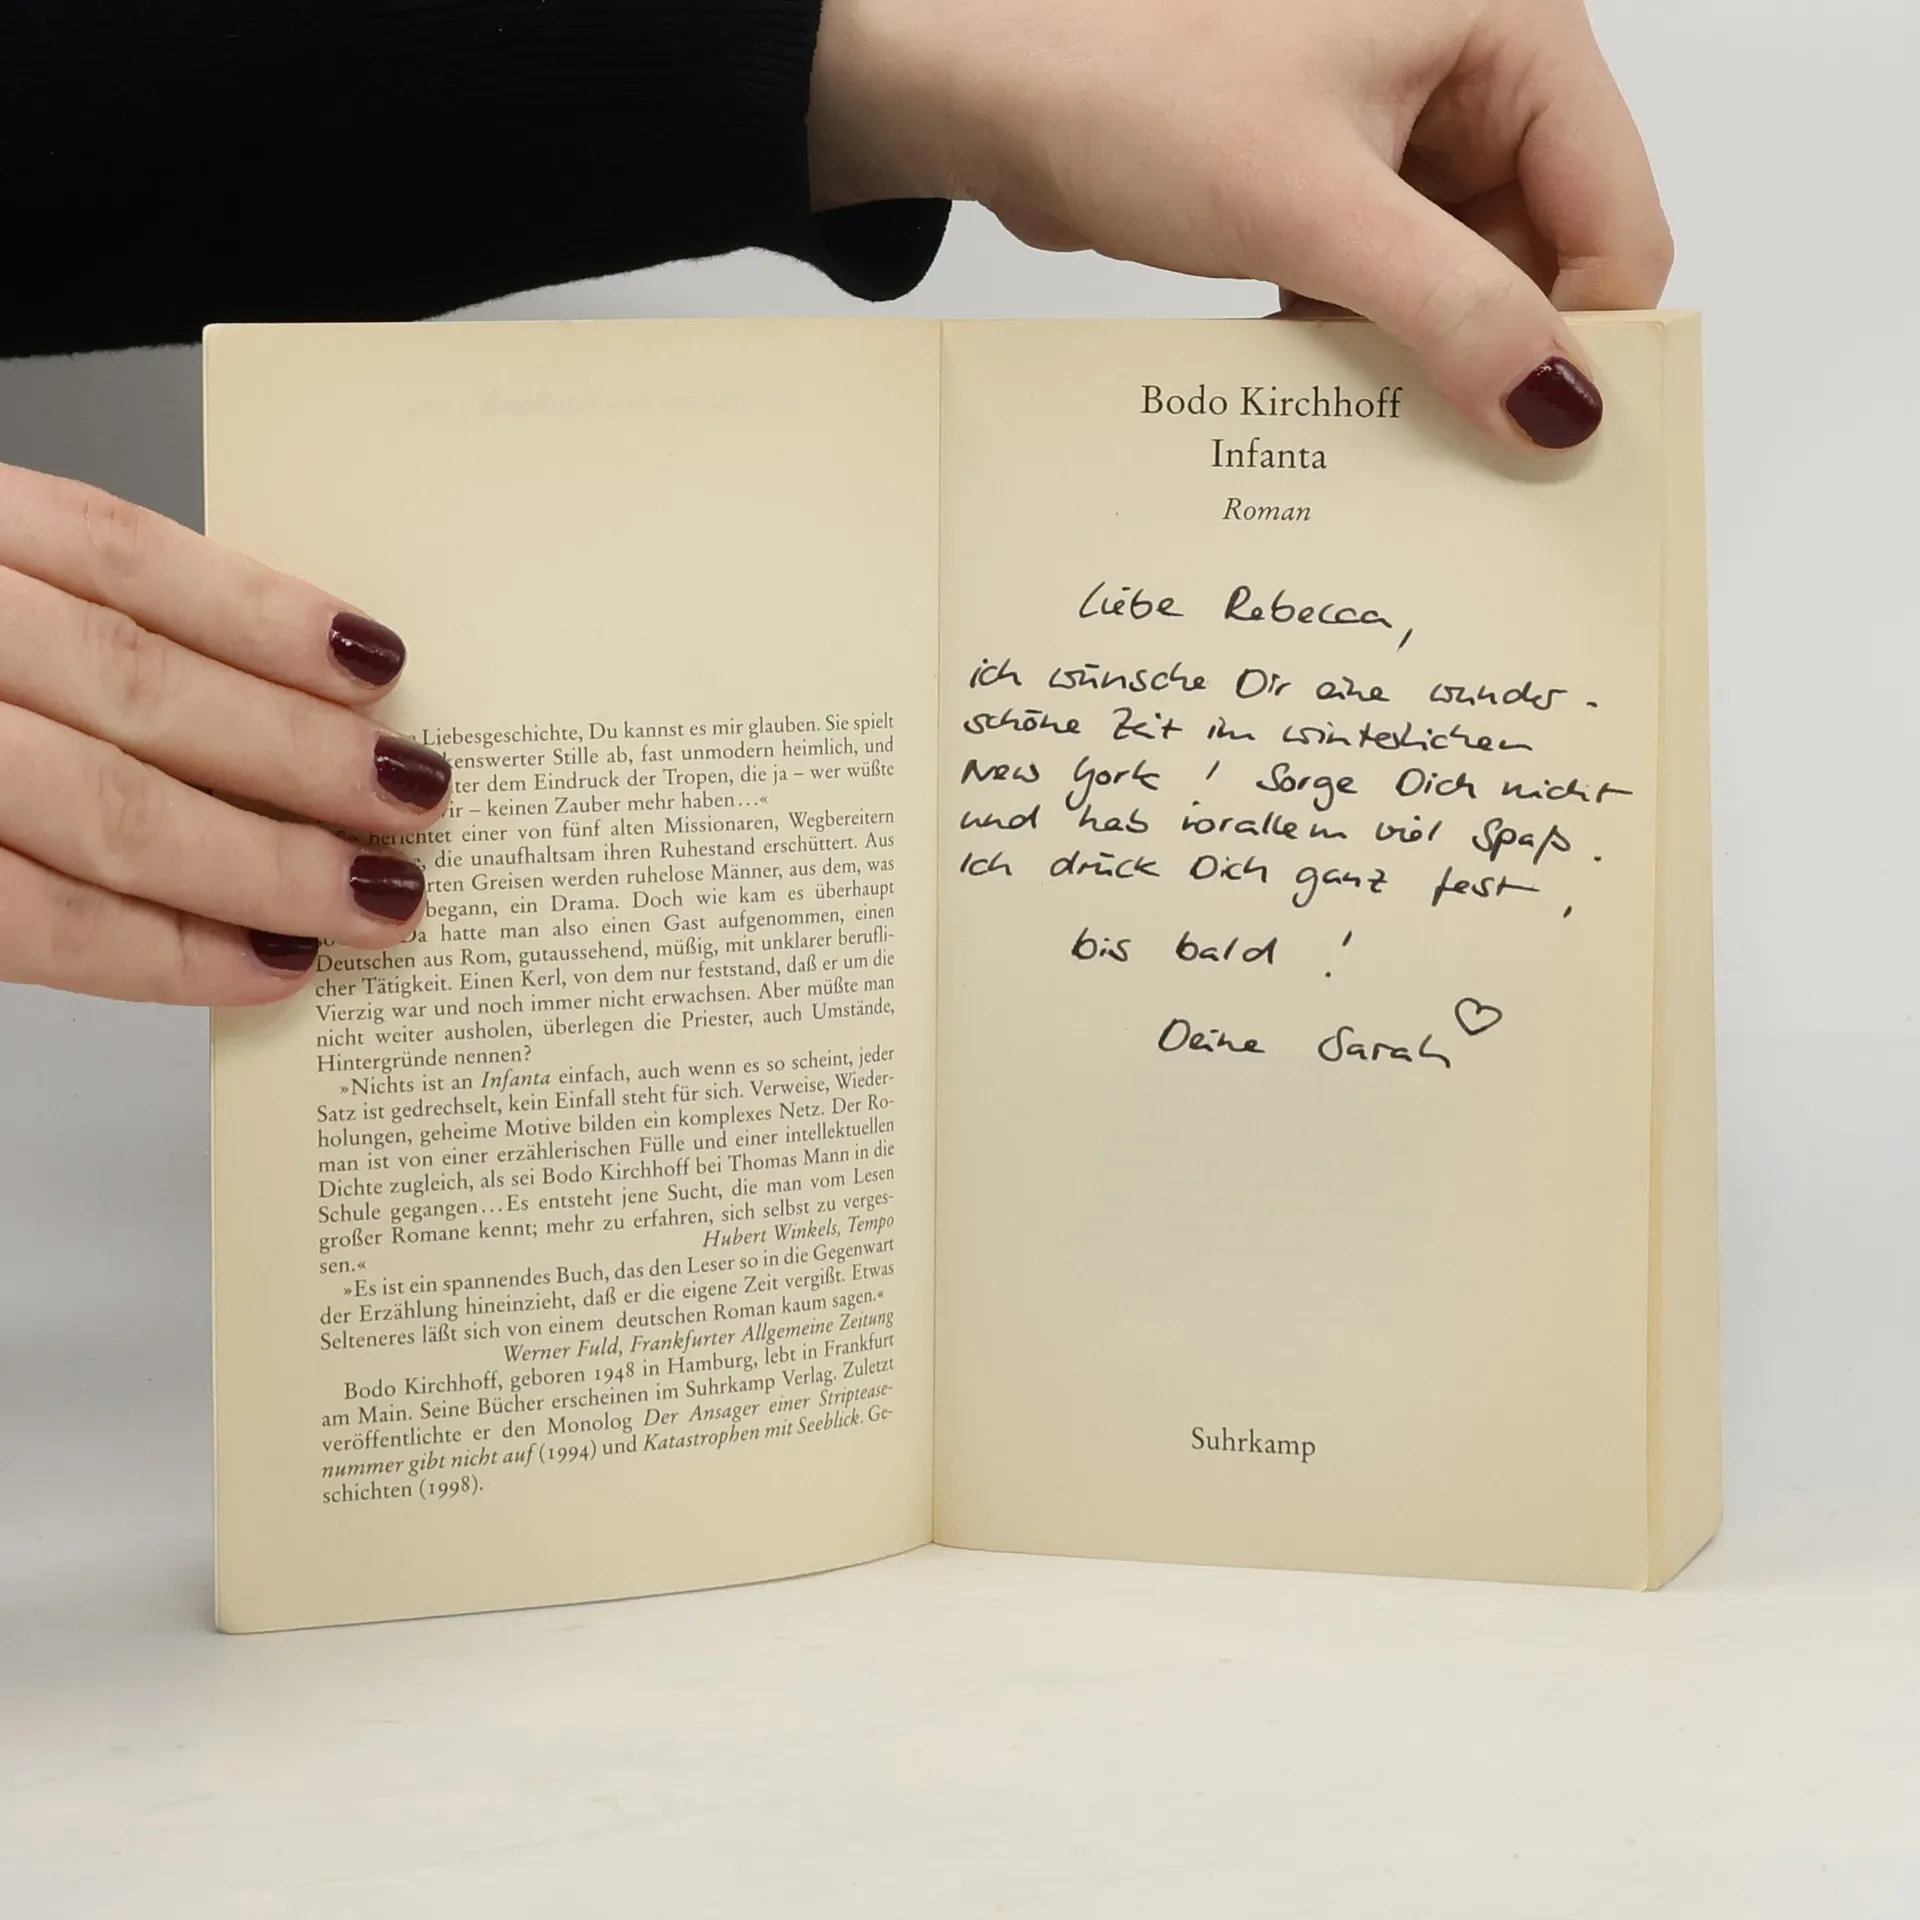 Liebesgeschichte, Du kannst es mir glauben. Sie spielt
kenswerter Stille ab, fast unmodern heimlich, und
ter dem Eindruck der Tropen, die ja – wer wüßte
vir – keinen Zauber mehr haben…«
berichtet einer von fünf alten Missionaren, Wegbereitern
, die unaufhaltsam ihren Ruhestand erschüttert. Aus
rten Greisen werden ruhelose Männer, aus dem, was
begann, ein Drama. Doch wie kam es überhaupt
Da hatte man also einen Gast aufgenommen, einen
Deutschen aus Rom, gutaussehend, müßig, mit unklarer berufli-
cher Tätigkeit. Einen Kerl, von dem nur feststand, daß er um die
Vierzig war und noch immer nicht erwachsen. Aber müßte man
nicht weiter ausholen, überlegen die Priester, auch Umstände,
Hintergründe nennen?
»Nichts ist an Infanta einfach, auch wenn es so scheint, jeder
Satz ist gedrechselt, kein Einfall steht für sich. Verweise, Wieder-
holungen, geheime Motive bilden ein komplexes Netz. Der Ro-
man ist von einer erzählerischen Fülle und einer intellektuellen
Dichte zugleich, als sei Bodo Kirchhoff bei Thomas Mann in die
Schule gegangen…Es entsteht jene Sucht, die man vom Lesen
großer Romane kennt; mehr zu erfahren, sich selbst zu verges-
sen.«
Hubert Winkels, Tempo
»Es ist ein spannendes Buch, das den Leser so in die Gegenwart
der Erzählung hineinzieht, daß er die eigene Zeit vergißt. Etwas
Selteneres läßt sich von einem deutschen Roman kaum sagen.«
Werner Fuld, Frankfurter Allgemeine Zeitung
Bodo Kirchhoff, geboren 1948 in Hamburg, lebt in Frankfurt
am Main. Seine Bücher erscheinen im Suhrkamp Verlag. Zuletzt
veröffentlichte er den Monolog Der Ansager einer Striptease-
nummer gibt nicht auf (1994) und Katastrophen mit Seeblick. Ge-
schichten (1998).
Bodo Kirchhoff
Infanta
Roman
Liebe Rebecca,
ich wünsche Dir eine wunder-
schöne Zeit im winterlichen
New York! Sorge Dich nicht
und hab vorallem viel Spaß.
Ich drück Dich ganz fest,
bis bald!
Deine Sarah ♡
Suhrkamp